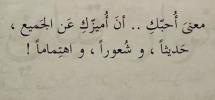 معنىَ أُحبّكِ .. أنَ أُميزّكِ عَن الجَميع ،
حَديثاً ، و شُعوراً ، و اهتِماماً !